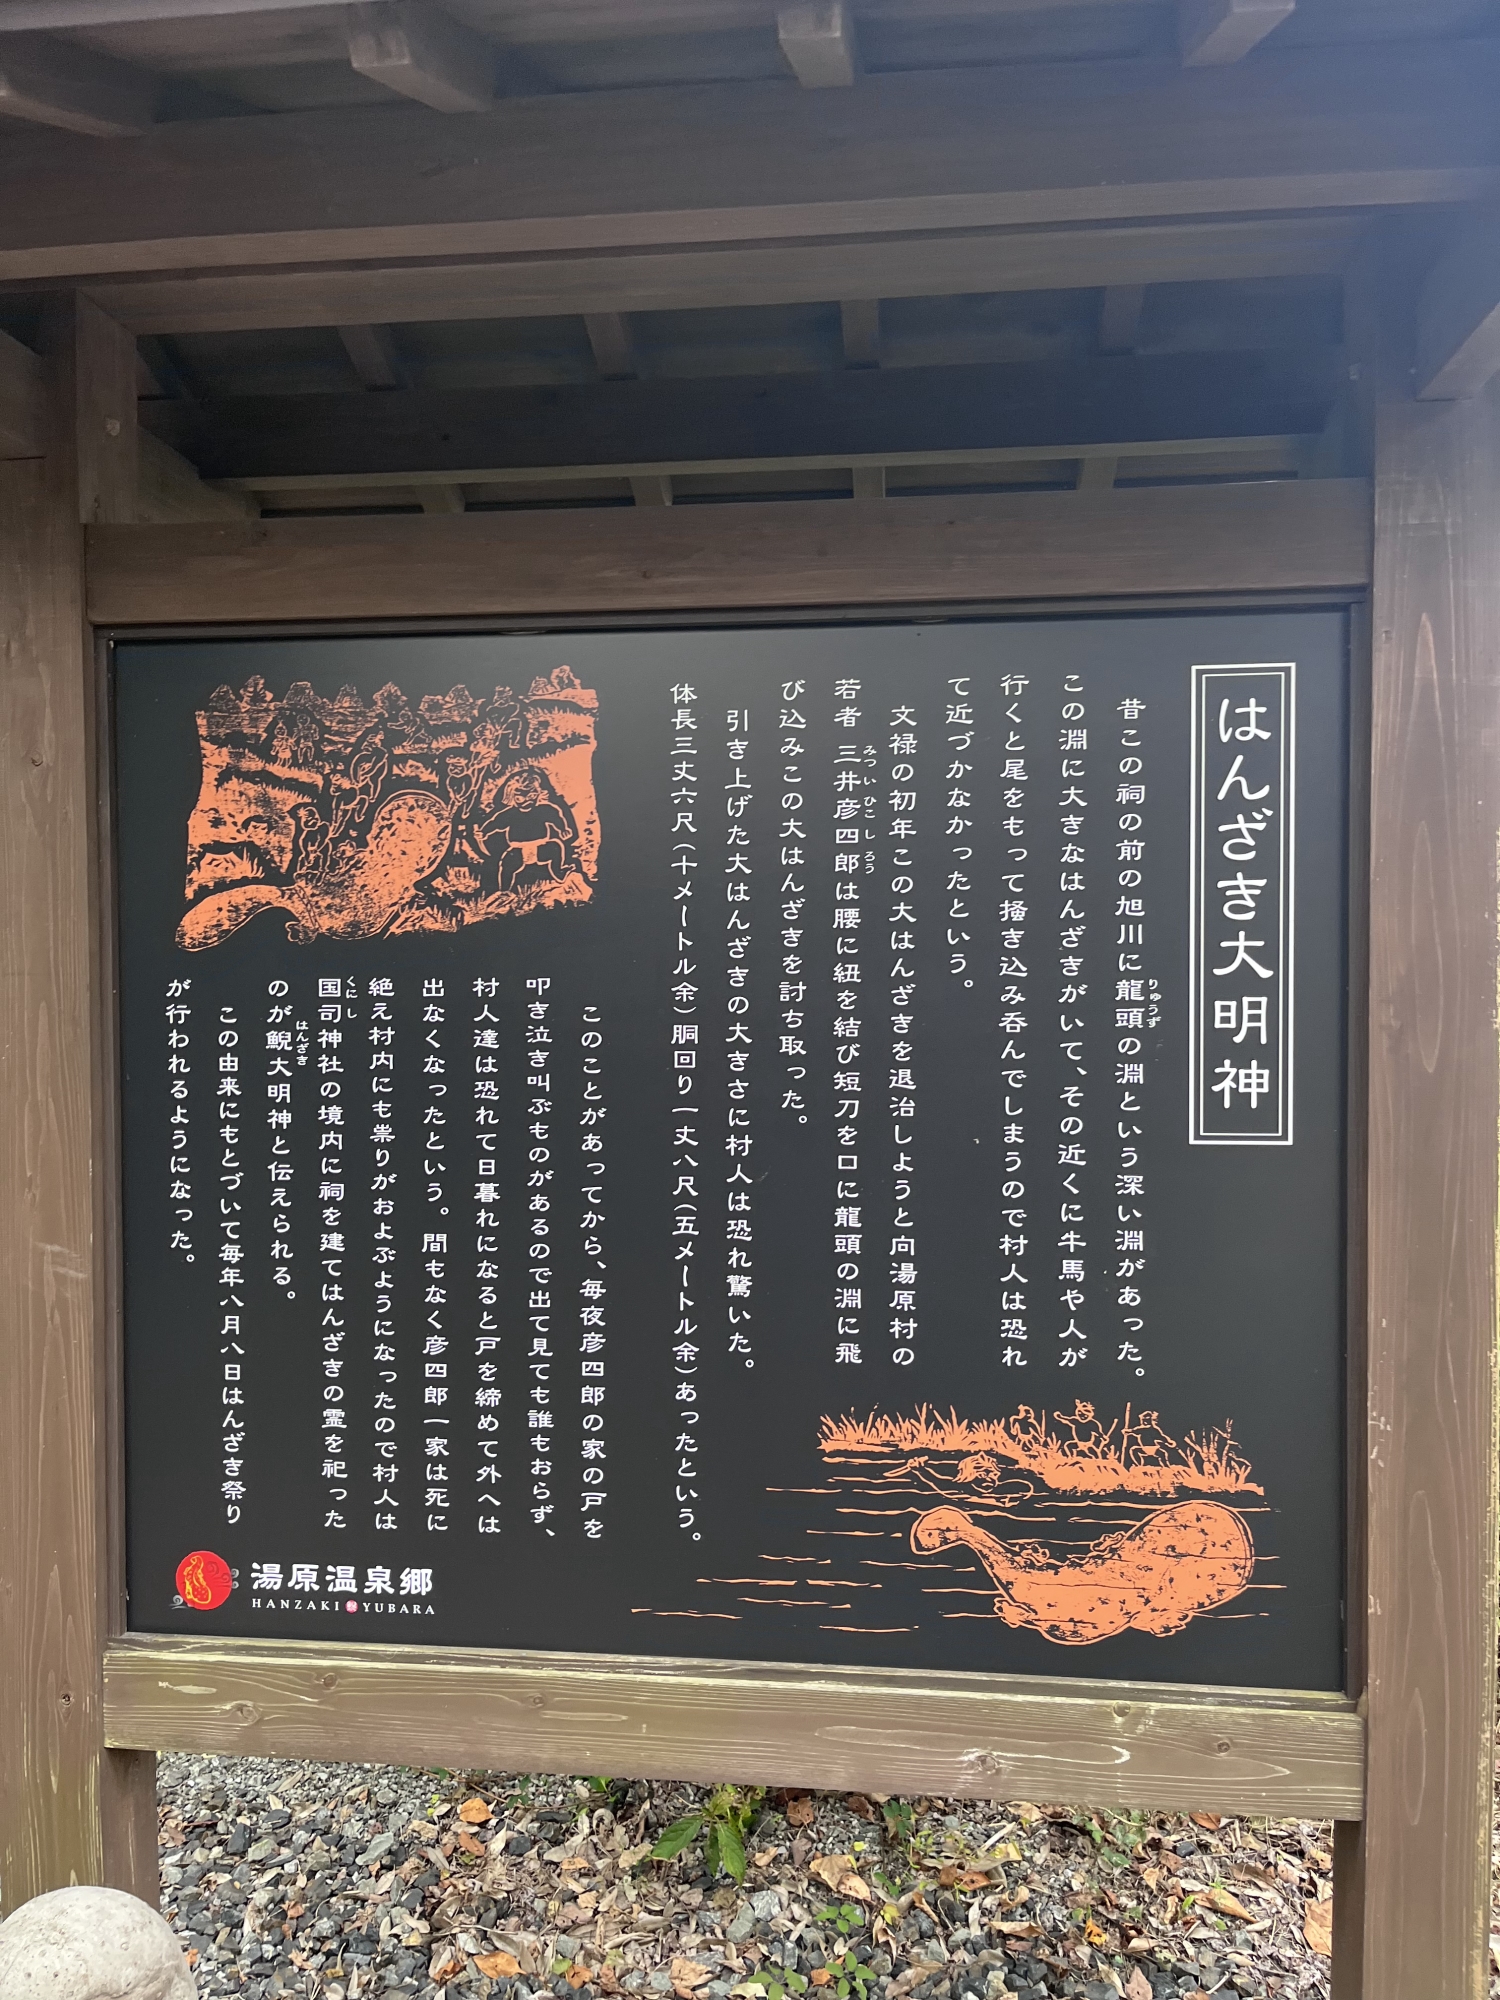 はんざき大明神
昔この祠の前の旭川に龍頭の淵という深い淵があった。
りゅうず
この淵に大きなはんざきがいて、その近くに牛馬や人が
行くと尾をもって掻き込み呑んでしまうので村人は恐れ
て近づかなかったという。
文禄の初年この大はんざきを退治しようと向湯原村の
若者 三井彦四郎は腰に紐を結び短刀を口に龍頭の淵に飛
みつい ひこしろう
び込みこの大はんざきを討ち取った。
引き上げた大はんざきの大きさに村人は恐れ驚いた。
体長三丈六尺(十メートル余)胴回り一丈八尺(五メートル余)あったという。
このことがあってから、毎夜彦四郎の家の戸を
叩き泣き叫ぶものがあるので出て見ても誰もおらず、
村人達は恐れて日暮れになると戸を締めて外へは
出なくなったという。間もなく彦四郎一家は死に
絶え村内にも祟りがおよぶようになったので村人は
国司神社の境内に祠を建てはんざきの霊を祀った
くにし
のが鯢大明神と伝えられる。
はんざき
この由来にもとづいて毎年八月八日はんざき祭り
が行われるようになった。
湯原温泉郷
HANZAKI YUBARA